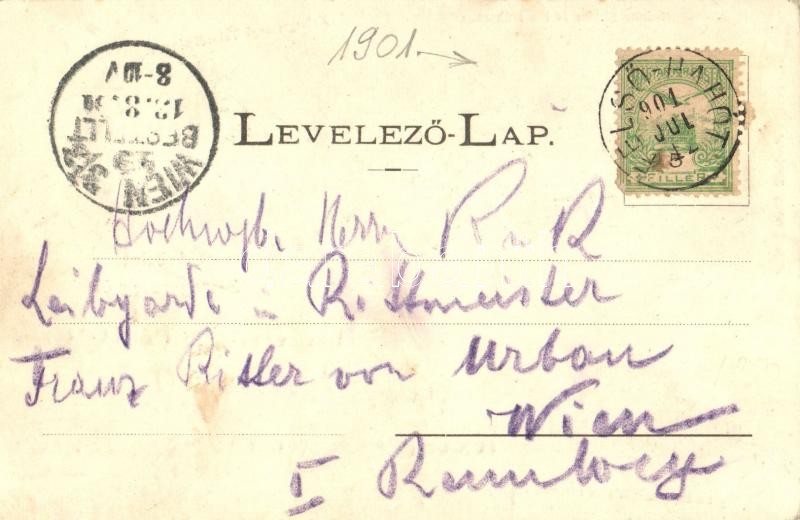 1901.
WIEN 3/2
BESTELLT
8-10V
LEVELEZŐ-LAP.
901
JUL
FILLER
Hochwgb. Herrn K u K
Leibgarde u Rittmeister
Franz Ritter von Urban
Wien
Rennweg